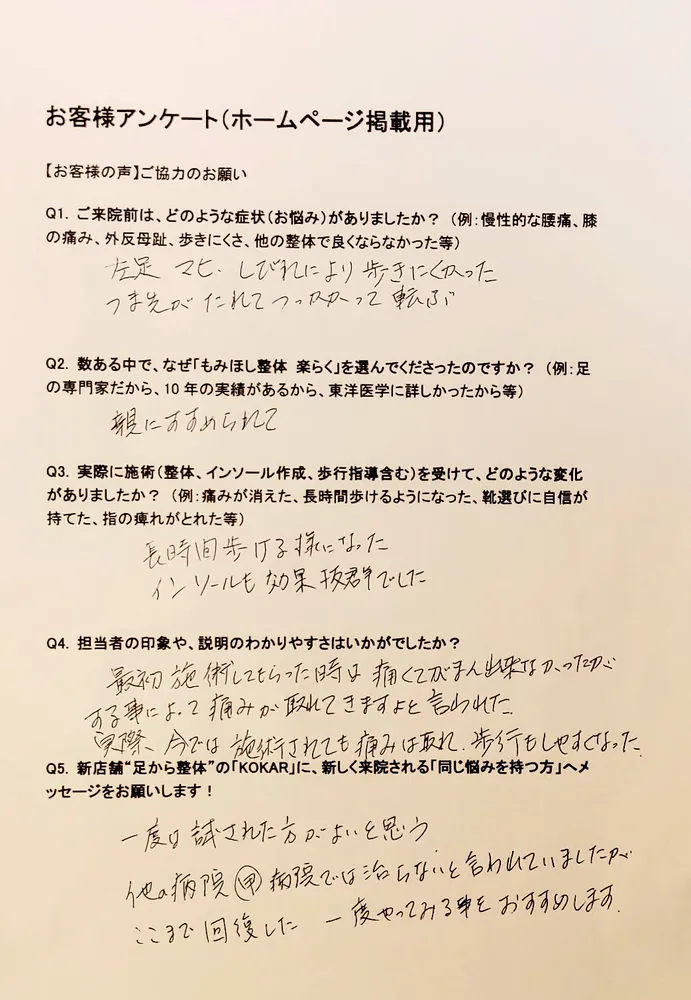 お客様アンケート(ホームページ掲載用)
【お客様の声】ご協力のお願い
Q1. ご来院前は、どのような症状(お悩み)がありましたか? (例:慢性的な腰痛、膝
の痛み、外反母趾、歩きにくさ、他の整体で良くならなかった等)
左足 マヒ、しびれにより 歩きにくかった
つま先が たれて つっかかって 転ぶ
Q2. 数ある中で、なぜ「もみほし整体 楽らく」を選んでくださったのですか? (例:足
の専門家だから、10年の実績があるから、東洋医学に詳しかったから等)
親にすすめられて
Q3. 実際に施術(整体、インソール作成、歩行指導含む)を受けて、どのような変化
がありましたか? (例:痛みが消えた、長時間歩けるようになった、靴選びに自信が
持てた、指の痺れがとれた等)
長時間歩ける様になった
インソールも 効果抜群でした
Q4. 担当者の印象や、説明のわかりやすさはいかがでしたか?
最初 施術してもらった時は 痛くてがまん出来なかったが
する事によって 痛みが 取れてきますよと言われた.
実際、今では 施術されても痛みは取れ、歩行もしやすくなった.
Q5. 新店舗“足から整体”の「KOKAR」に、新しく来院される「同じ悩みを持つ方」へメ
ッセージをお願いします!
一度は 試された方がよいと思う
他の病院 甲 病院では治らないと言われていましたが
ここまで 回復した 一度やってみる事を おすすめします.